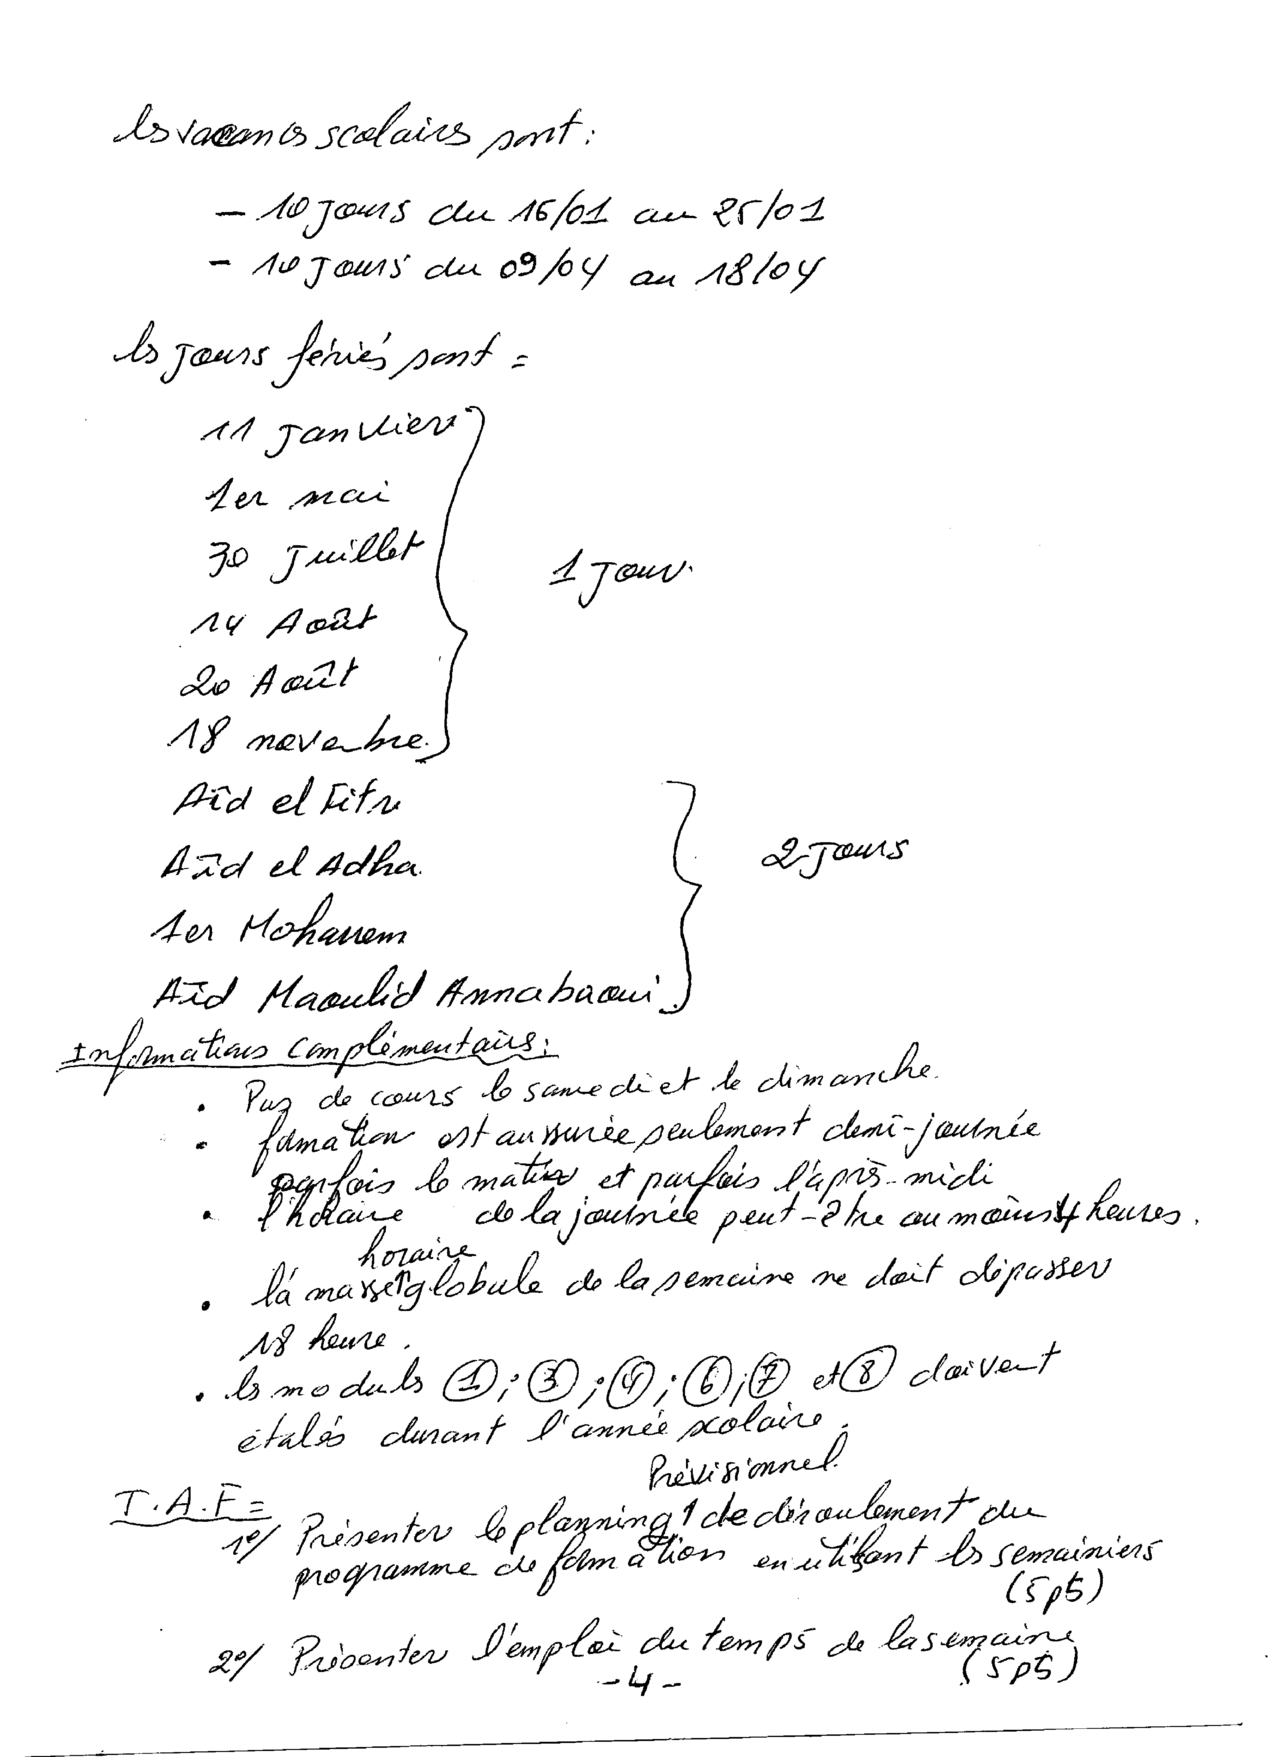 les vacances scolaires sont :
- 10 jours du 16/01 au 25/01
- 10 jours du 09/04 au 18/04
les jours fériés sont =
11 Janvier
1er mai
30 Juillet
1 Jour.
14 Août
20 Août
18 novembre.
Aïd el Fitr
Aïd el Adha.
2 Jours
1er Moharrem
Aïd Maoulid Annabaoui
Informations complémentaires :
. Pas de cours le samedi et le dimanche.
. formation est assurée seulement demi-journée
parfois le matin et parfois l'après-midi
. l'horaire de la journée peut-être au moins 4 heures.
horaire
. la masse globule de la semaine ne doit dépasser
18 heure.
. les moduls 1 ; 3 ; 4 ; 6 ; 7 et 8 doivent
étalés durant l'année scolaire.
Prévisionnel.
T.A.F =
1°/ Présenter le planning de déroulement du
programme de formation en utilisant les semainiers
(5 pts)
2°/ Présenter l'emploi du temps de la semaine
(5 pts)
- 4 -